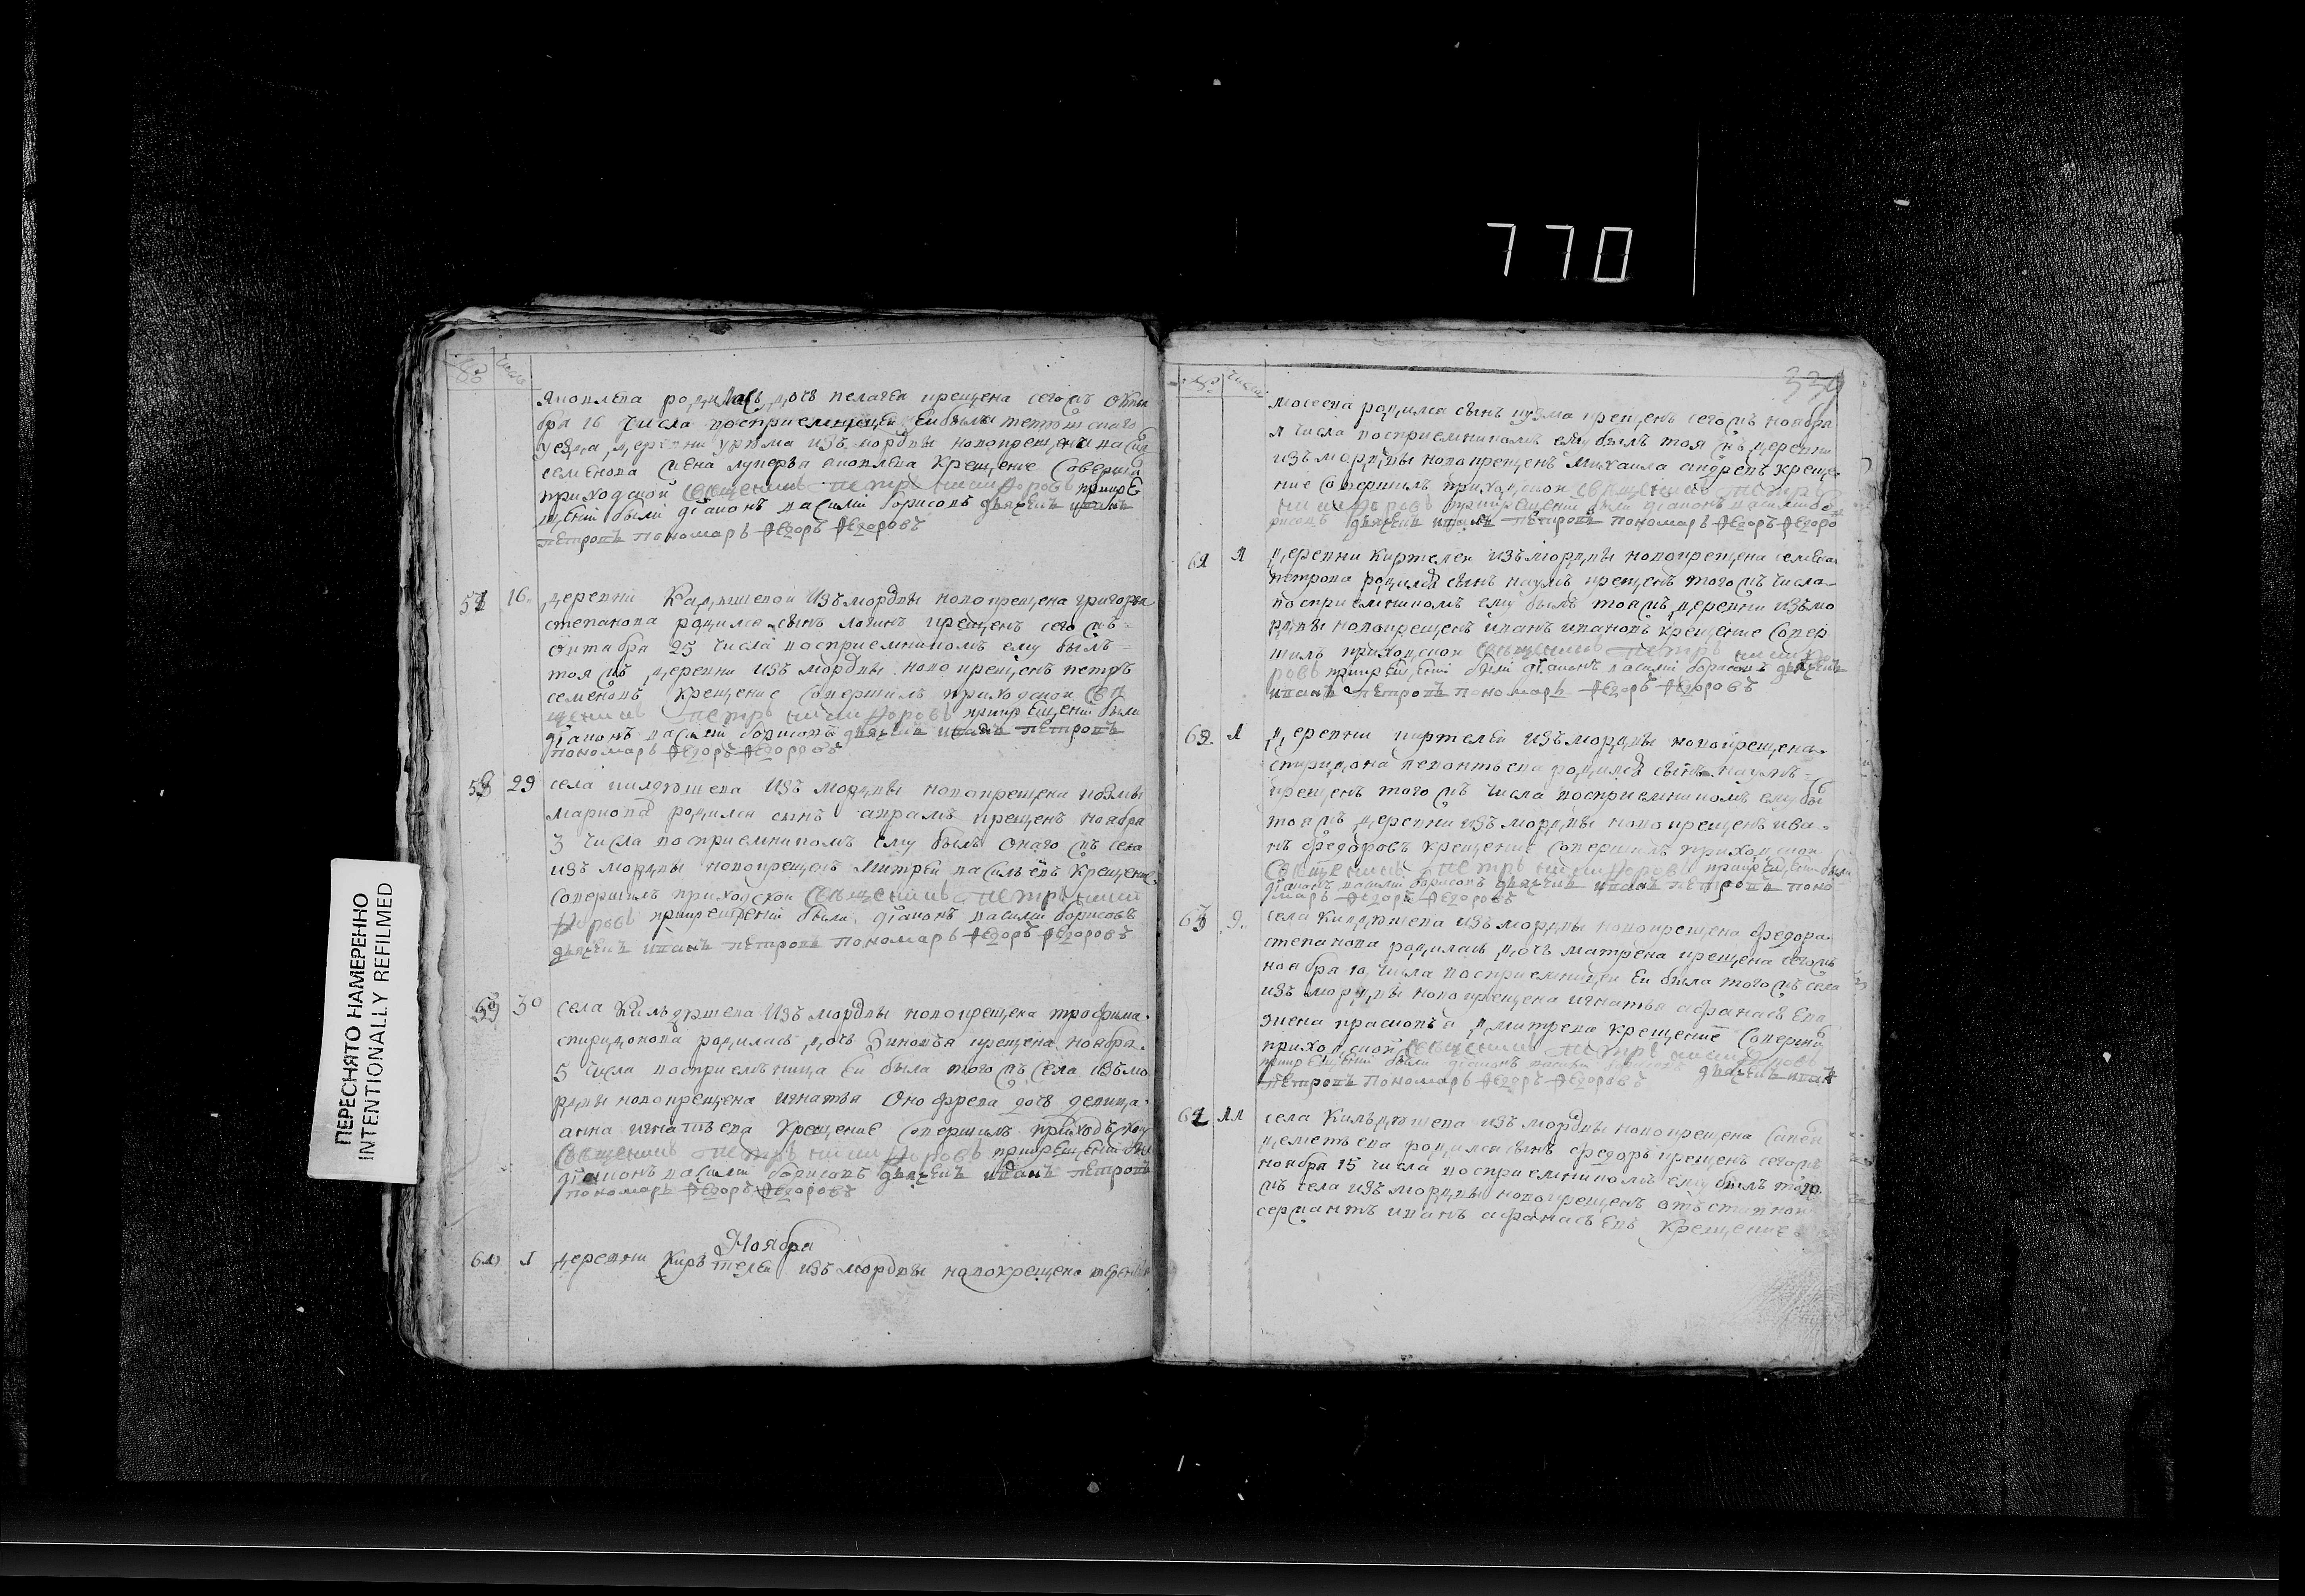 770
ПЕРЕСНЯТО НАМЕРЕННО
INTENTIONALLY REFILMED
№ число
яковлева родилась дочь пелагея крещена сегожъ октя
бря 16 числа восприемницей ей была
уезда деревни уръма изъ мордвы новокрещена
семенова жена лукеръя яковлева крещение соверши
приходской священникъ петръ никифоровъ при кре
щении были диаконъ василий борисовъ дьячекъ иванъ
петровъ пономарь федоръ федоровъ
57 16 деревни Кадышевой изъ мордвы новокрещена григорья
степанова родился сынъ логинъ крещенъ сегожъ
октября 25 числа восприемникомъ ему былъ
тояжъ деревни изъ мордвы новокрещенъ петръ
семеновъ крещение совершилъ приходской свя
щенникъ петръ никифоровъ при крещении были
диаконъ василий борисовъ дьячекъ иванъ петровъ
пономарь федоръ федоровъ
58 29 села килдюшева изъ мордвы новокрещена козмы
маркова родился сынъ аврамъ крещенъ ноября
3 числа восприемникомъ ему былъ онаго жъ села
изъ мордвы новокрещенъ митрей васильевъ крещение
совершилъ приходской священникъ петръ ники
форовъ при крещении были диаконъ василий борисовъ
дьячекъ иванъ петровъ пономарь федоръ федоровъ
59 30 села Кильдюшева изъ мордвы новокрещена трофима
спиридонова родилась дочь Зиновъя крещена ноября
5 числа восприемница ей была того жъ села изъ мо
рдвы новокрещена игнатья Онофрева дочь девица
анна игнатьева крещение совершилъ приходской
священникъ петръ никифоровъ при крещении были
диаконъ василий борисовъ дьячекъ иванъ петровъ
пономарь федоръ федоровъ
Ноября
60 1 деревни Киртелей изъ мордвы новокрещена
мосеева родился сынъ кузма крещенъ сегожъ ноября
1 числа восприемникомъ ему былъ тоя жъ деревни
изъ мордвы новокрещенъ михаила андреевъ креще
ние совершилъ приходской священникъ петръ
никифоровъ при крещении были диаконъ василий бо
рисовъ дьячекъ иванъ петровъ пономарь федоръ федоро
61 1 деревни киртелей изъ мордвы новокрещена семена
петрова родился сынъ наумъ крещенъ того жъ числа
восприемникомъ ему былъ тояжъ деревни изъ мо
рдвы новокрещенъ иванъ ивановъ крещение совер
шилъ приходской священникъ петръ никифо
ровъ при крещении были диаконъ василий борисовъ дьячекъ
иванъ петровъ пономарь федоръ федоровъ
62 1 деревни киртелей изъ мордвы новокрещена
спиридона леонтьева родился сынъ наумъ
крещенъ того жъ числа восприемникомъ ему бы
тояжъ деревни изъ мордвы новокрещенъ ива
нъ федоровъ крещение совершилъ приходской
священникъ петръ никифоровъ при крещении были
диаконъ василий борисовъ дьячекъ иванъ петровъ поно
марь федоръ федоровъ
63 9 села Килдюшева изъ мордвы новокрещена федора
степанова родилась дочь матрена крещена сегожъ
ноября 10 числа восприемницей ей была того жъ села
изъ мордвы новокрещена игнатья афанасьева
жена прасковья дмитрева крещение соверши
приходской священникъ петръ никифоровъ
при крещении были диаконъ василий борисовъ дьячекъ иванъ
петровъ пономарь федоръ федоровъ
64 11 села Кильдюшева изъ мордвы новокрещена савелья
дементьева родился сынъ федоръ крещенъ сегожъ
ноября 15 числа восприемникомъ ему былъ того
жъ села изъ мордвы новокрещенъ отъставной
сержантъ иванъ афанасьевъ Крещение